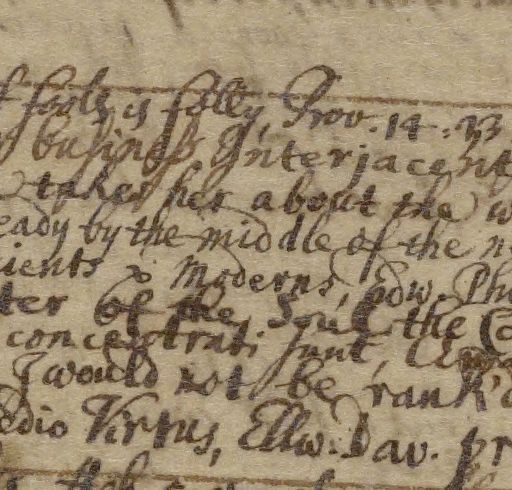 f fools is folly, Prov. 14. 23
business Interjacent
takes her about the w
eady by the middle of the n
cients & Moderns, Edw. Phi
ter of the Soul the Ce
concentrati sunt,
I would not be rank'd
edio Virtus, Ellw. Dav. pr